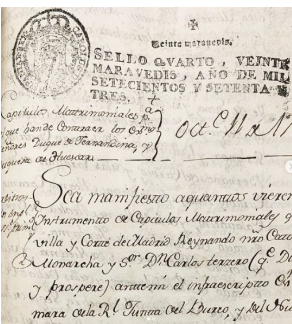 Veinte maravedis.
SELLO QVARTO, VEINTE
MARAVEDIS, AÑO DE MIL
SETECIENTOS Y SETENTA Y
TRES.
Capitulos Matrimoniales
que han de Contraer los
Señores Duque de Fernandina, y
Duquesa de Huescar
Oct.e 11 de 17
Sea manifiesto aquantos vieren
Instrumento de Capitulos Matrimoniales q
villa y Corte de Madrid Reynando nro Cato
Monarcha y S.or D.n Carlos tercero (q. D
y prospere) antemi el infraescripto
mara de la R.l Junta de Bureo, y del